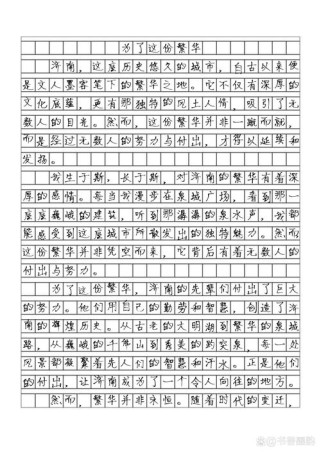 为了这份繁华
济南，这座历史悠久的城市，自古以来便
是文人墨客笔下的繁华之地。它不仅有深厚的
文化底蕴，更有那独特的风土人情，吸引了无
数人的目光。然而，这份繁华并非一蹴而就，
而是经过无数人的努力与付出，才得以延续和
发扬。
我生于斯，长于斯，对济南的繁华有着深
厚的感情。每当我漫步在泉城广场，看到那一
座座巍峨的建筑，听到那潺潺的泉水声，我都
能感受到这座城市所散发出的独特魅力。然而
这份繁华并非凭空而来，它背后有着无数人的
付出与努力。
为了这份繁华，济南的先辈们付出了巨大
的努力。他们用自己的勤劳和智慧，创造了济
南的辉煌历史。从古老的大明湖到繁华的泉城
路，从巍峨的千佛山到秀美的趵突泉，每一处
风景都凝聚着先人们的智慧和汗水。正是他们
的付出，让济南成为了一个令人向往的地方。
然而，繁华并非永恒。随着时代的变迁，